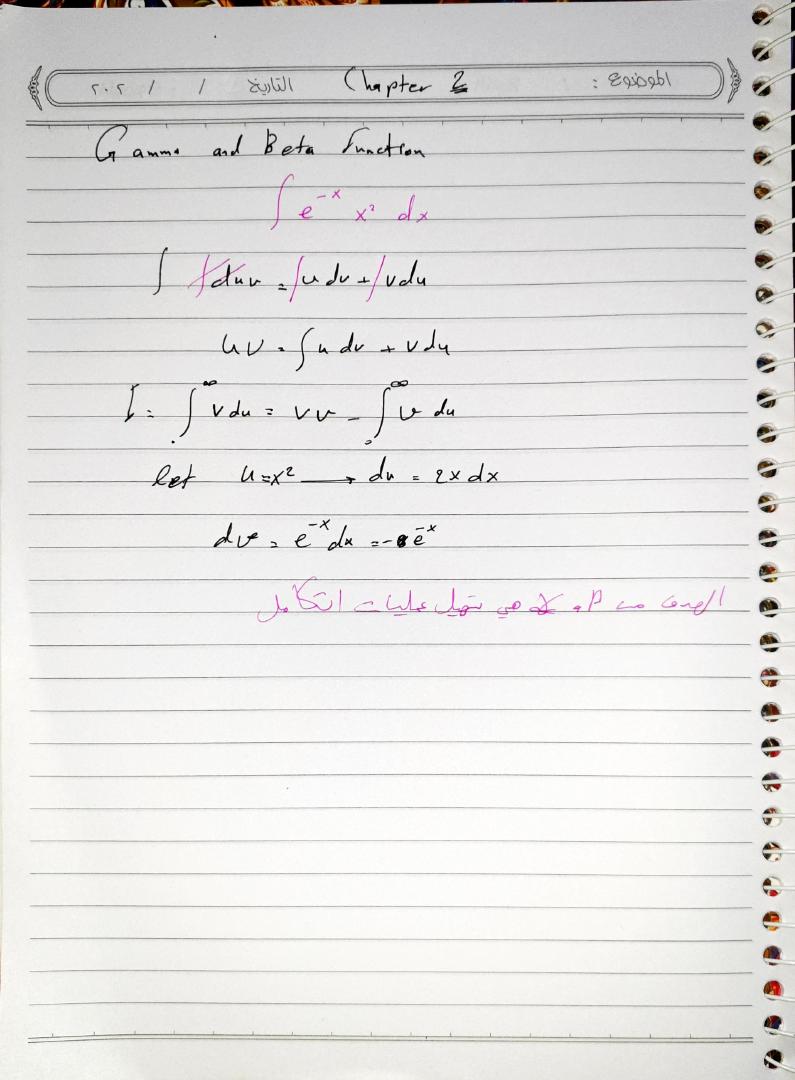 الموضوع : Chapter 2 التاريخ / / ٢٠٢
Gamma and Beta Function
∫ e^-x x² dx
∫ duv = ∫u dv + ∫vdu
uv = ∫u dv + v du
I = ∫₀^∞ v du = vv - ∫₀^∞ v du
let u=x² → du = 2x dx
dv = e^-x dx = -e^-x
الهدف من β و γ هي تسهيل عمليات التكامل